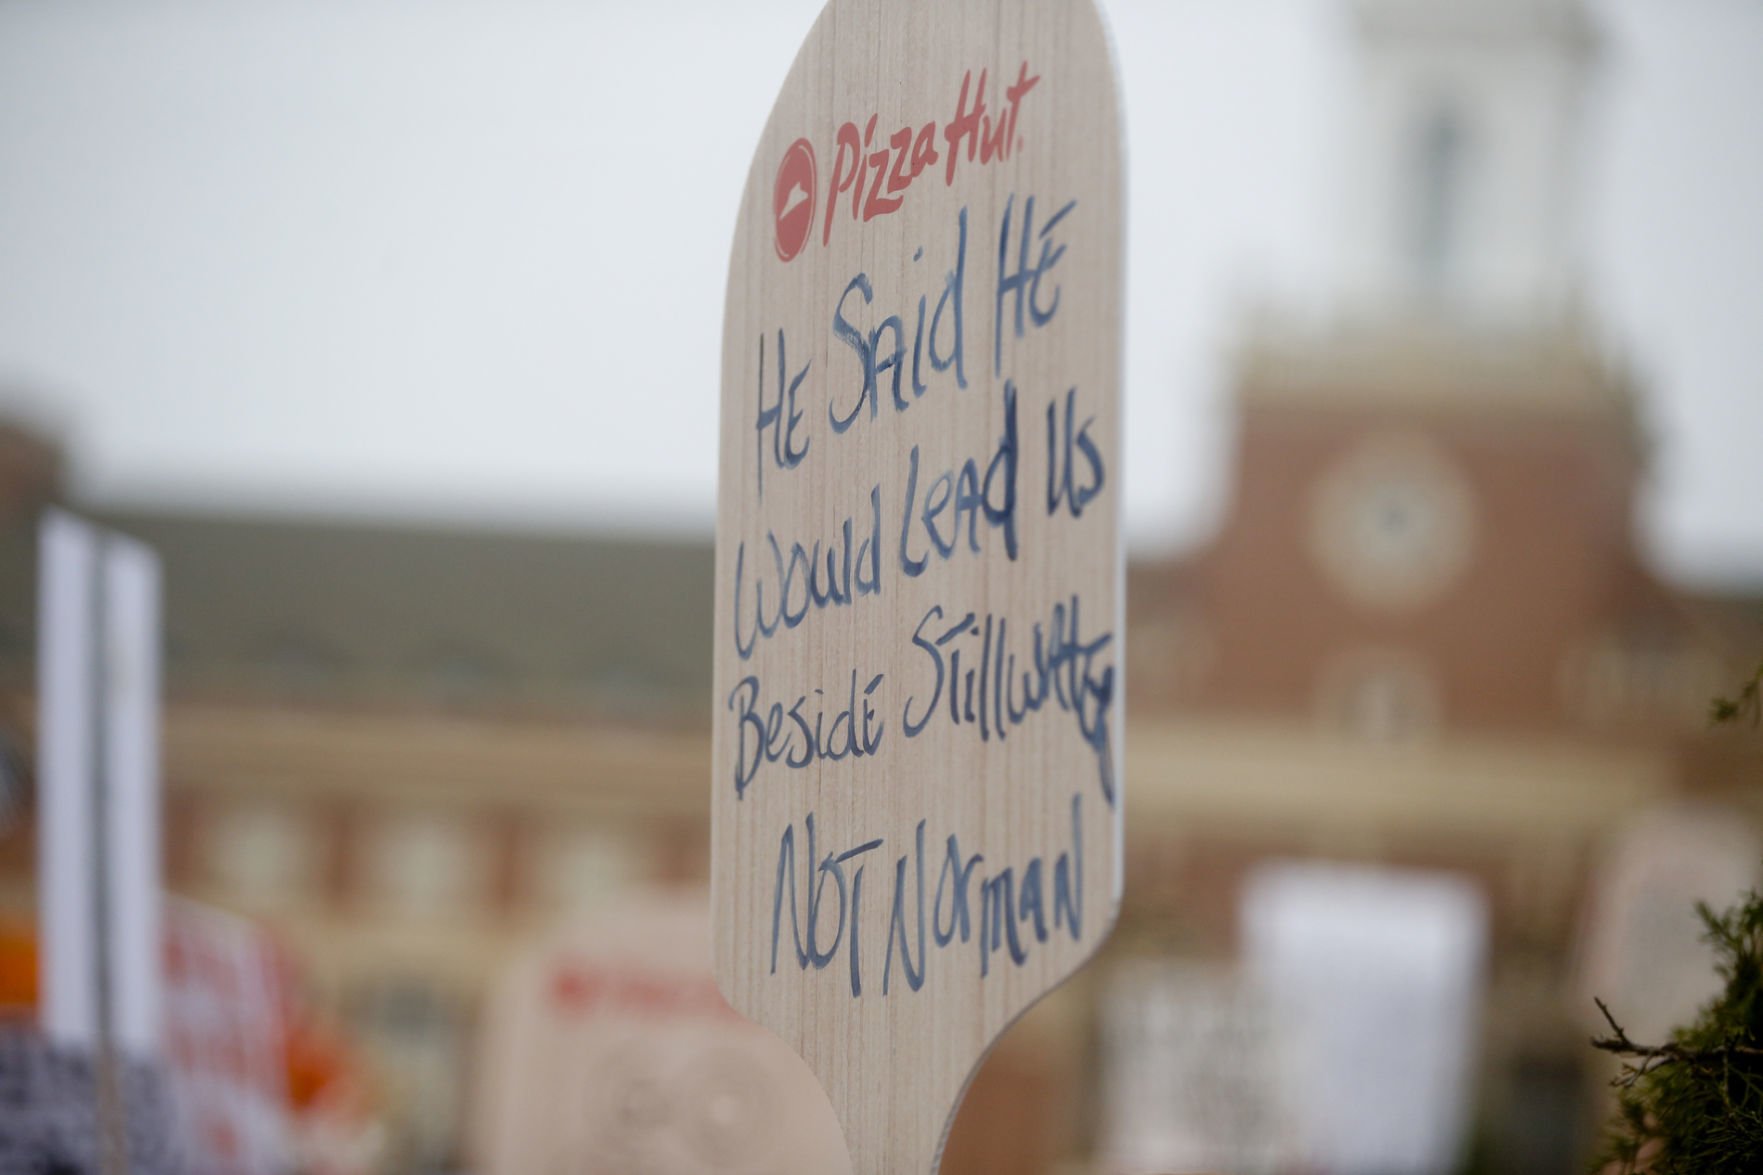 Pizza Hut
HE SAid HE
Would LeAd Us
Beside Stillwater
NOT NormaN